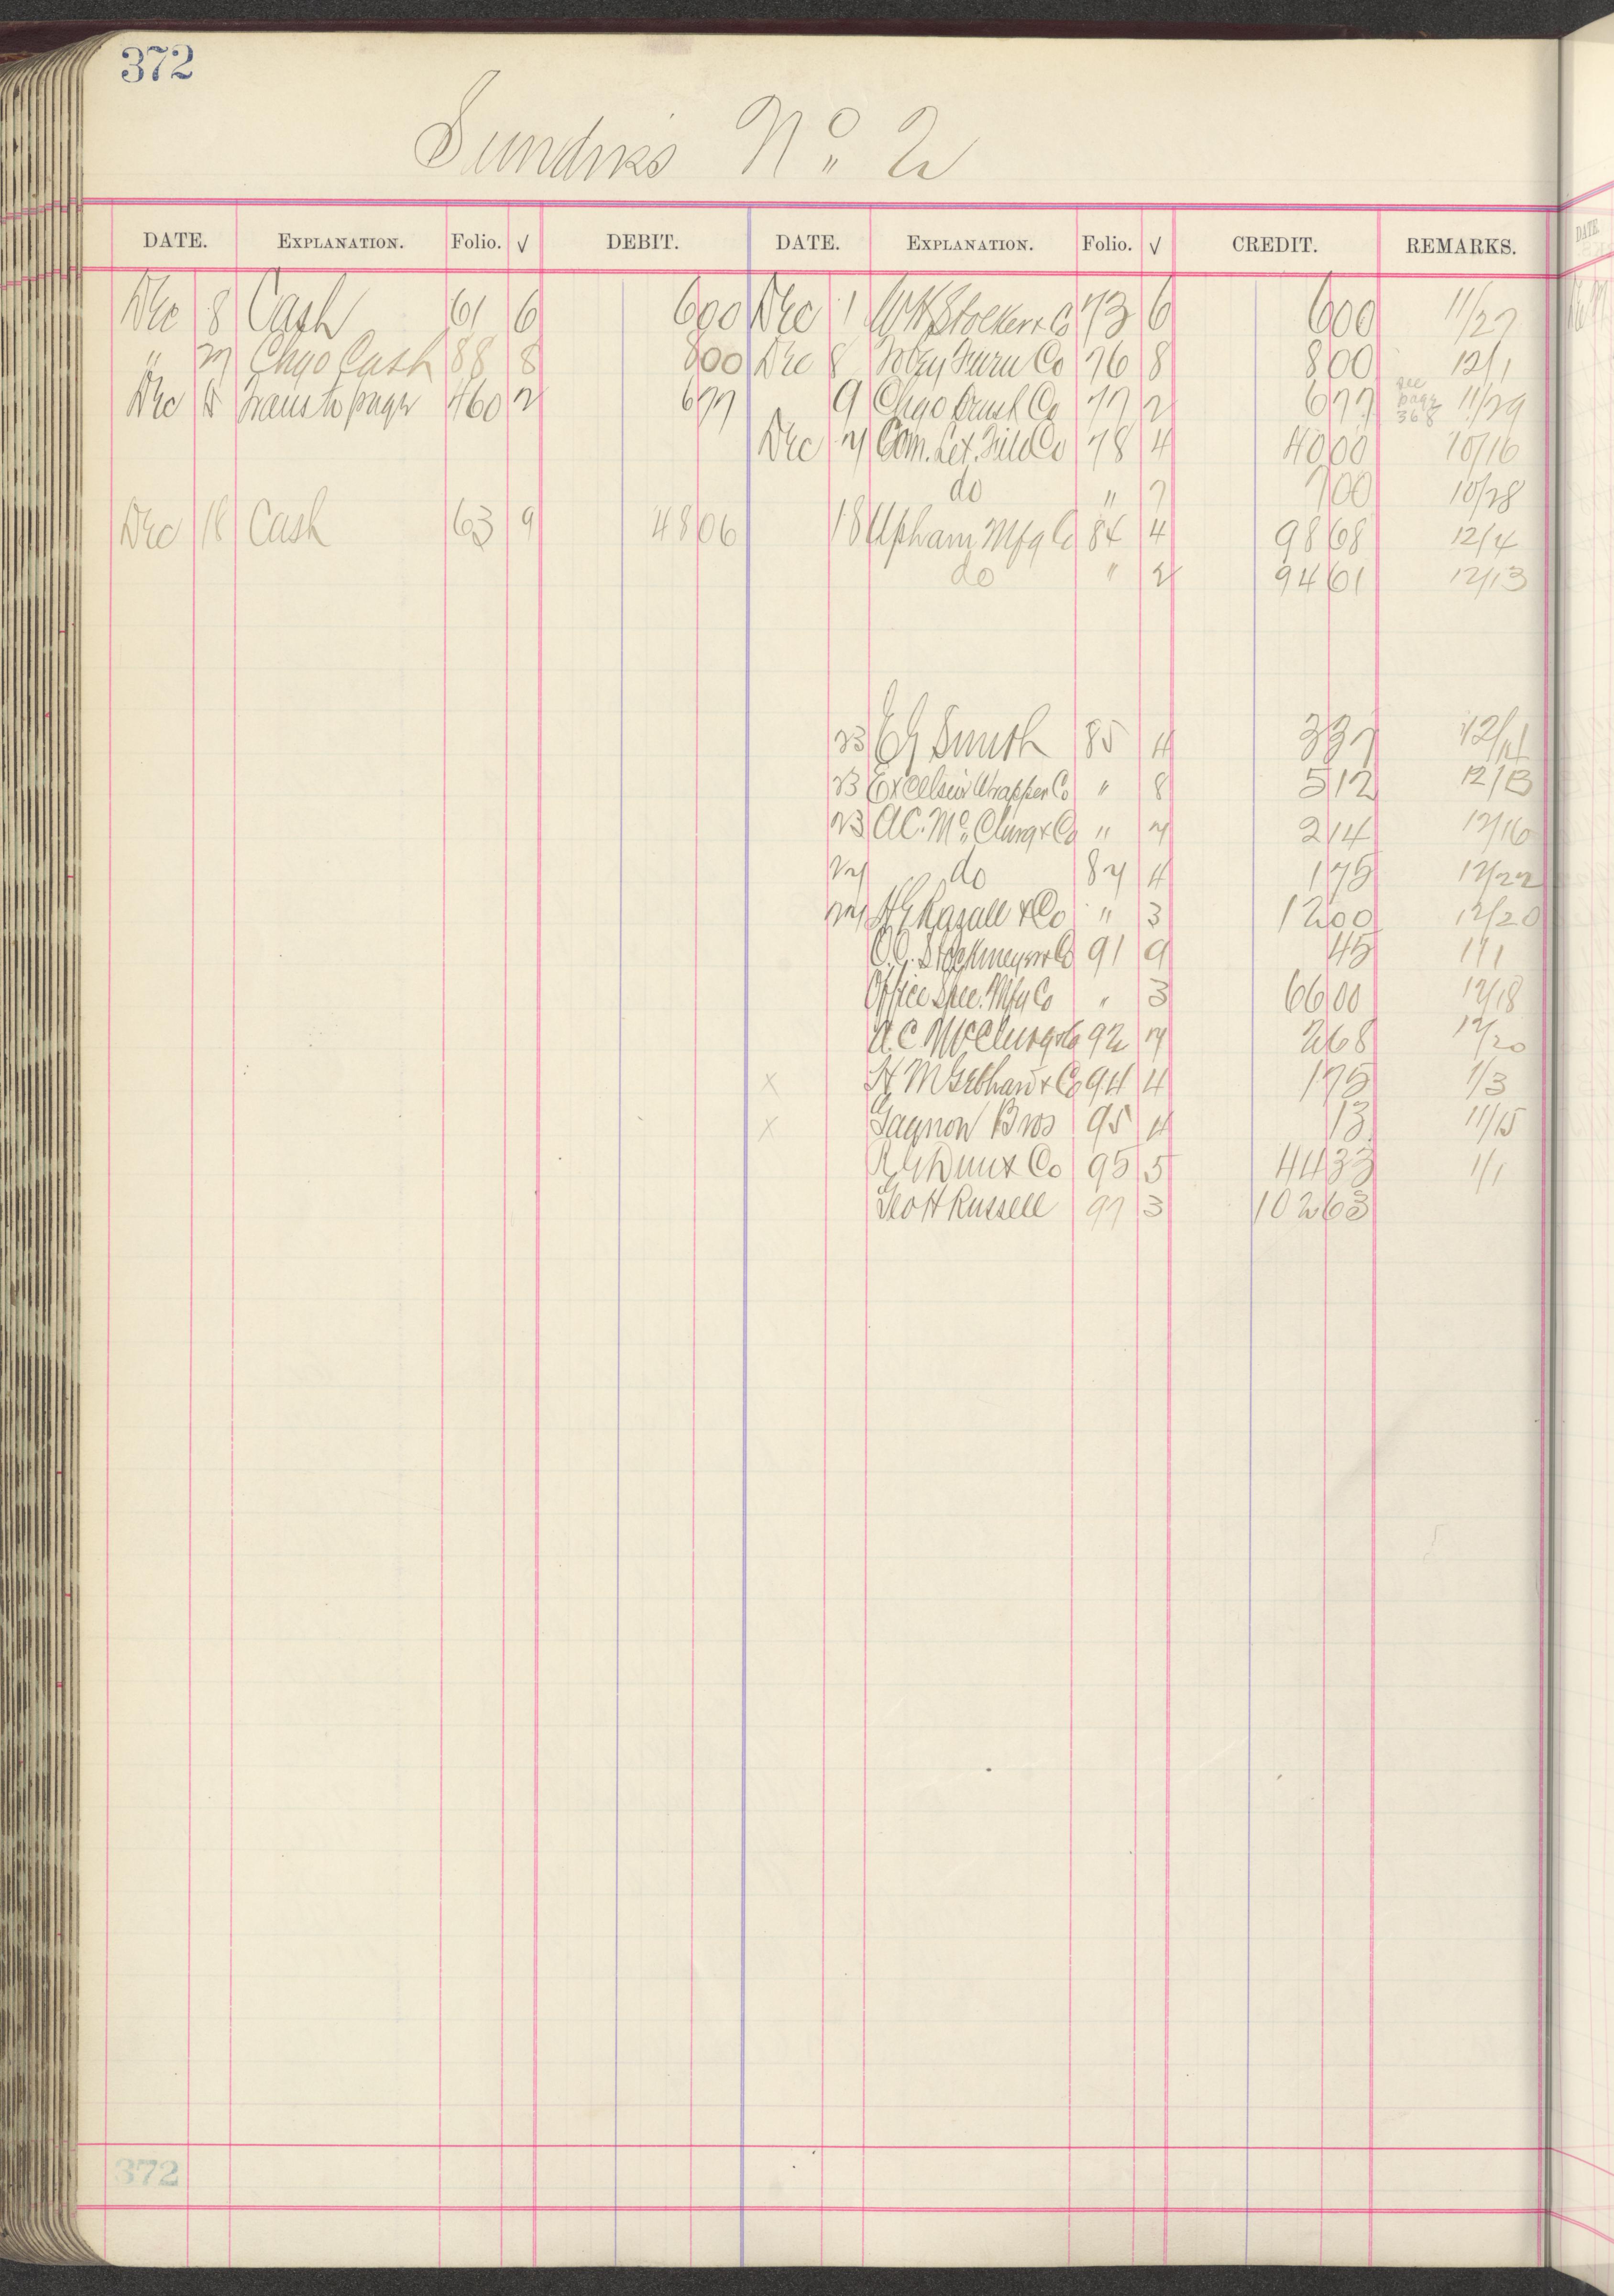 372
Sundries No. 2
DATE. EXPLANATION. Folio. √ DEBIT. DATE. EXPLANATION. Folio. √ CREDIT. REMARKS.
Dec 8 Cash 61 6 6 00 Dec 1 73 6 6 00 11/27
" Chgo Cash 88 8 8 00 Dec 8 Co 76 8 8 00 12/1
Dec Trans to page 460 2 6 77 9 Chgo Co 77 2 6 77 see page 368 11/29
Dec Com. Co 78 4 40 00 10/16
do " 7 7 00 10/28
Dec 18 Cash 63 9 48 06 18 Upham Mfg Co 84 4 98 68 12/4
do " 2 94 61 12/13
23 Smith 85 4 3 37 12/11
23 Excelsior Wrapper Co " 8 5 12 12/13
23 A.C. McClurg & Co " 2 14 12/16
do 4 1 75 12/22
& Co " 3 12 00 12/20
91 9 45 1/1
Office Spec. Mfg Co " 3 66 00 12/18
A.C. McClurg & Co 92 2 68 12/20
x H M Gebhard & Co 94 4 1 75 1/3
x Gagnon Bros 95 4 13 11/15
R G Dun & Co 95 5 44 33 1/1
Geo H Russell 97 3 102 63
372